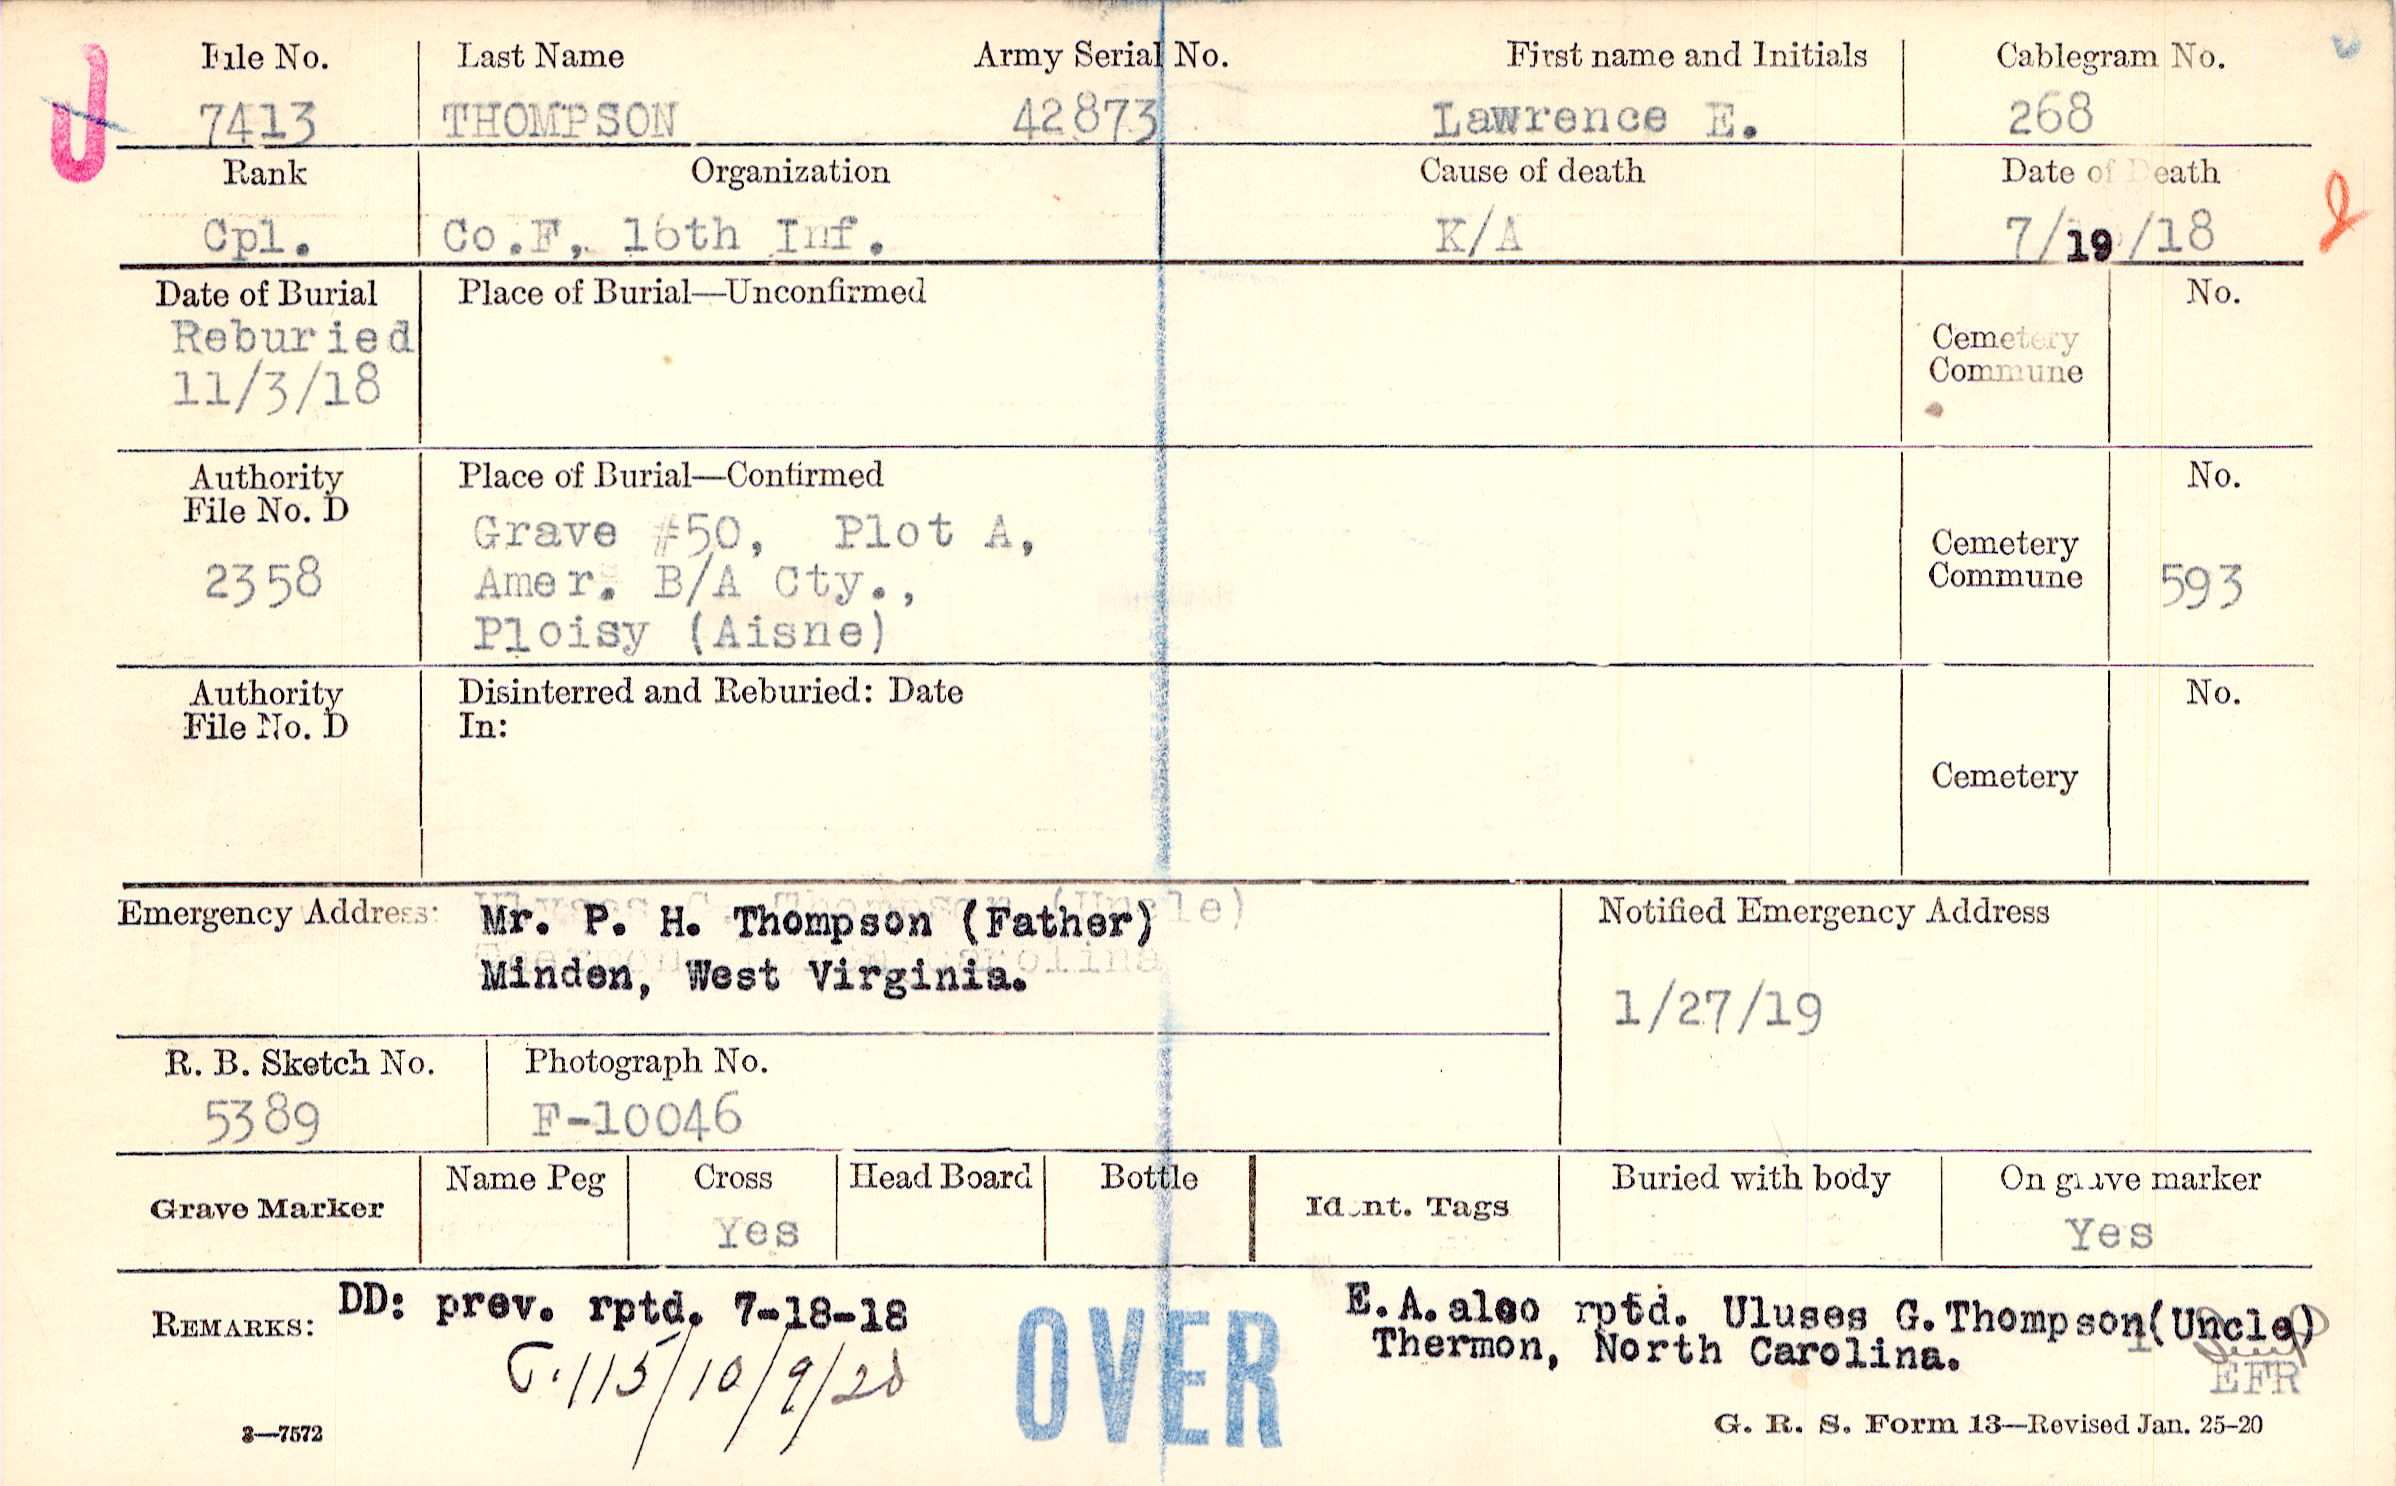 File No. Last Name Army Serial No. First name and Initials Cablegram No.
7413 THOMPSON 42873 Lawrence E. 268
Rank Organization Cause of death Date of Death
Cpl. Co.F, 16th Inf. K/A 7/19/18
Date of Burial Place of Burial—Unconfirmed No.
Reburied
11/3/18
Cemetery
Commune
Authority Place of Burial—Confirmed No.
File No. D
2358
Grave #50, Plot A,
Amer. B/A Cty.,
Ploisy (Aisne)
Cemetery
Commune 593
Authority Disinterred and Reburied: Date No.
File No. D In:
Cemetery
Emergency Address: Mr. P. H. Thompson (Father)
Minden, West Virginia.
Notified Emergency Address
1/27/19
R. B. Sketch No. Photograph No.
5389 F-10046
Grave Marker Name Peg Cross Head Board Bottle Ident. Tags Buried with body On grave marker
Yes Yes
REMARKS: DD: prev. rptd. 7-18-18
115/10/9/20
OVER
E.A. also rptd. Uluses G.Thompson(Uncle)
Thermon, North Carolina.
EFR
3—7572 G. R. S. Form 13—Revised Jan. 25-20